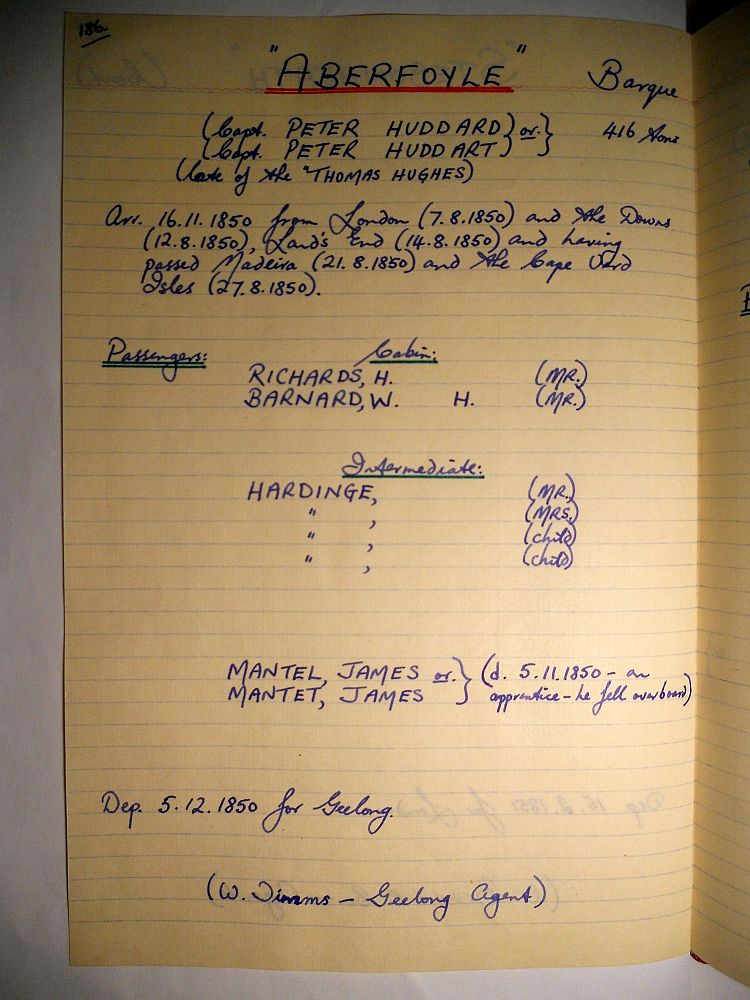 186.
"ABERFOYLE" Barque
(Capt. PETER HUDDARD) or.} 416 tons
(Capt. PETER HUDDART)
(late of the "THOMAS HUGHES)
Arr. 16.11.1850 from London (7.8.1850) and the Downs
(12.8.1850), Land's End (14.8.1850) and having
passed Madeira (21.8.1850) and the Cape Verd
Isles (27.8.1850).
Passengers: Cabin:
RICHARDS, H. (MR.)
BARNARD, W. H. (MR.)
Intermediate:
HARDINGE, (MR.)
" , (MRS.)
" , (child)
" , (child)
MANTEL, JAMES or.} (d. 5.11.1850 - an
MANTET, JAMES apprentice - he fell overboard)
Dep. 5.12.1850 for Geelong.
(W. Timms - Geelong Agent)